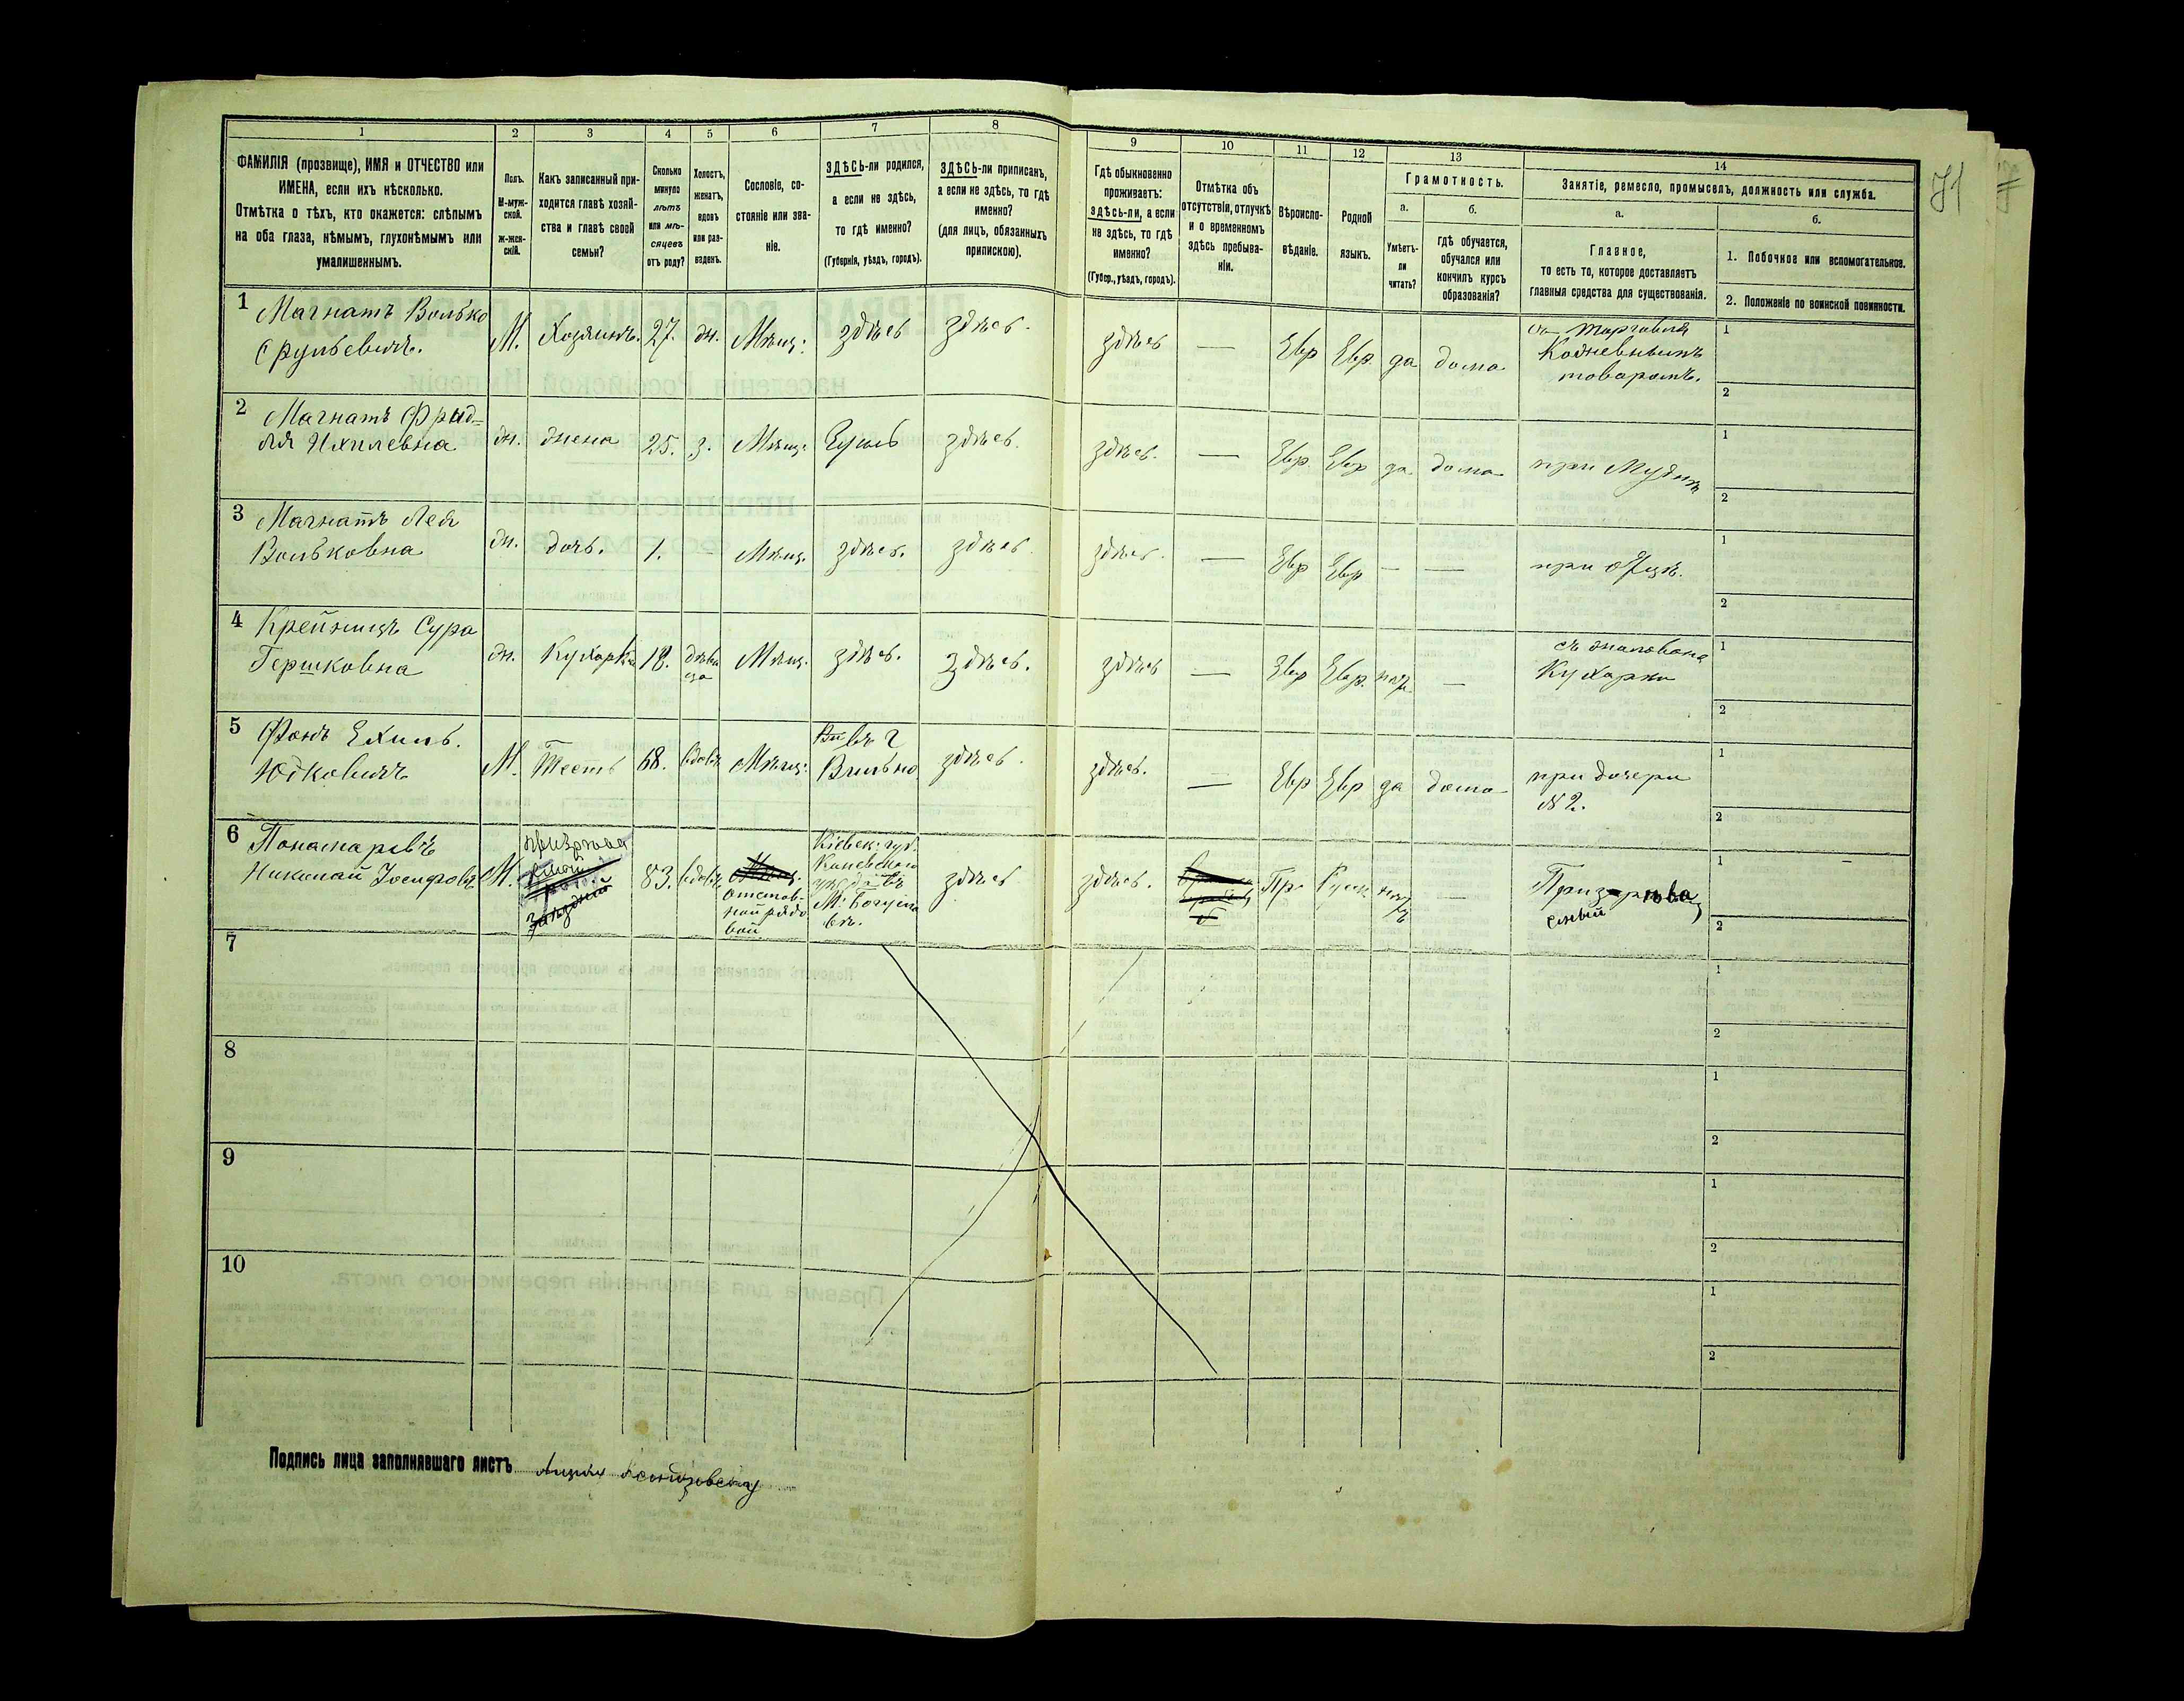 71
1 2 3 4 5 6 7 8 9 10 11 12 13 14
ФАМИЛІЯ (прозвище), ИМЯ и ОТЧЕСТВО или
ИМЕНА, если ихъ нѣсколько.
Отмѣтка о тѣхъ, кто окажется: слѣпымъ
на оба глаза, нѣмымъ, глухонѣмымъ или
умалишеннымъ.
Полъ.
М-муж-
ской.
ж-жен-
скій.
Какъ записанный при-
ходится главѣ хозяй-
ства и главѣ своей
семьи?
Сколько
минуло
лѣтъ
или мѣ-
сяцевъ
отъ роду?
Холостъ,
женатъ,
вдовъ
или раз-
веденъ.
Сословіе, со-
стояніе или зва-
ніе.
ЗДѢСЬ-ли родился,
а если не здѣсь,
то гдѣ именно?
(Губернія, уѣздъ, городъ).
ЗДѢСЬ-ли приписанъ,
а если не здѣсь, то гдѣ
именно?
(для лицъ, обязанныхъ
припискою).
Гдѣ обыкновенно
проживаетъ:
здѣсь-ли, а если
не здѣсь, то гдѣ
именно?
(Губер., уѣздъ, городъ).
Отмѣтка объ
отсутствіи, отлучкѣ
и о временномъ
здѣсь пребыва-
ніи.
Вѣроиспо-
вѣданіе.
Родной
языкъ.
Грамотность.
а.
Умѣетъ-
ли
читать?
б.
гдѣ обучается,
обучался или
кончилъ курсъ
образованія?
Занятіе, ремесло, промыселъ, должность или служба.
а.
Главное,
то есть то, которое доставляетъ
главныя средства для существованія.
б.
1. Побочное или вспомогательное.
2. Положеніе по воинской повинности.
1 Магнатъ Волько
Срульевичъ.
М. Хозяинъ. 27. ж. Мѣщ. здѣсь здѣсь. здѣсь — Евр Евр. да дома
торговля
товаромъ.
1
2
2 Магнатъ Фрид-
ля Ихилевна
ж. жена 25. з. Мѣщ. здѣсь. здѣсь. — Евр. Евр да. дома при Мужѣ
1
2
3 Магнатъ Лея
Вольковна
ж. дочь. 1. — Мѣщ. здѣсь. здѣсь. здѣсь. — Евр Евр — — при Отцѣ.
1
2
4 Сура
Гершковна
ж. Кухарка 18. дѣви
ца
Мѣщ. здѣсь. здѣсь. здѣсь — Евр Евр. нѣтъ —
Кухарки
1
2
5 Ехиль.
Юдковичъ
М. Тесть 68. вдовъ Мѣщ. въ г
Вильно
здѣсь. здѣсь. — Евр Евр да дома при дочери
№ 2.
1
2
6 Понамаревъ
Николай Іосифовъ
М. 83. вдовъ
отстав-
ной рядо
вой
Кіевск. губ.
Каневскаго
въ
М. Богусла
вѣ.
здѣсь здѣсь. Пр. Русск. нѣтъ —
1
2
7
1
2
8
1
2
9
1
2
10
1
2
Подпись лица заполнявшаго листъ